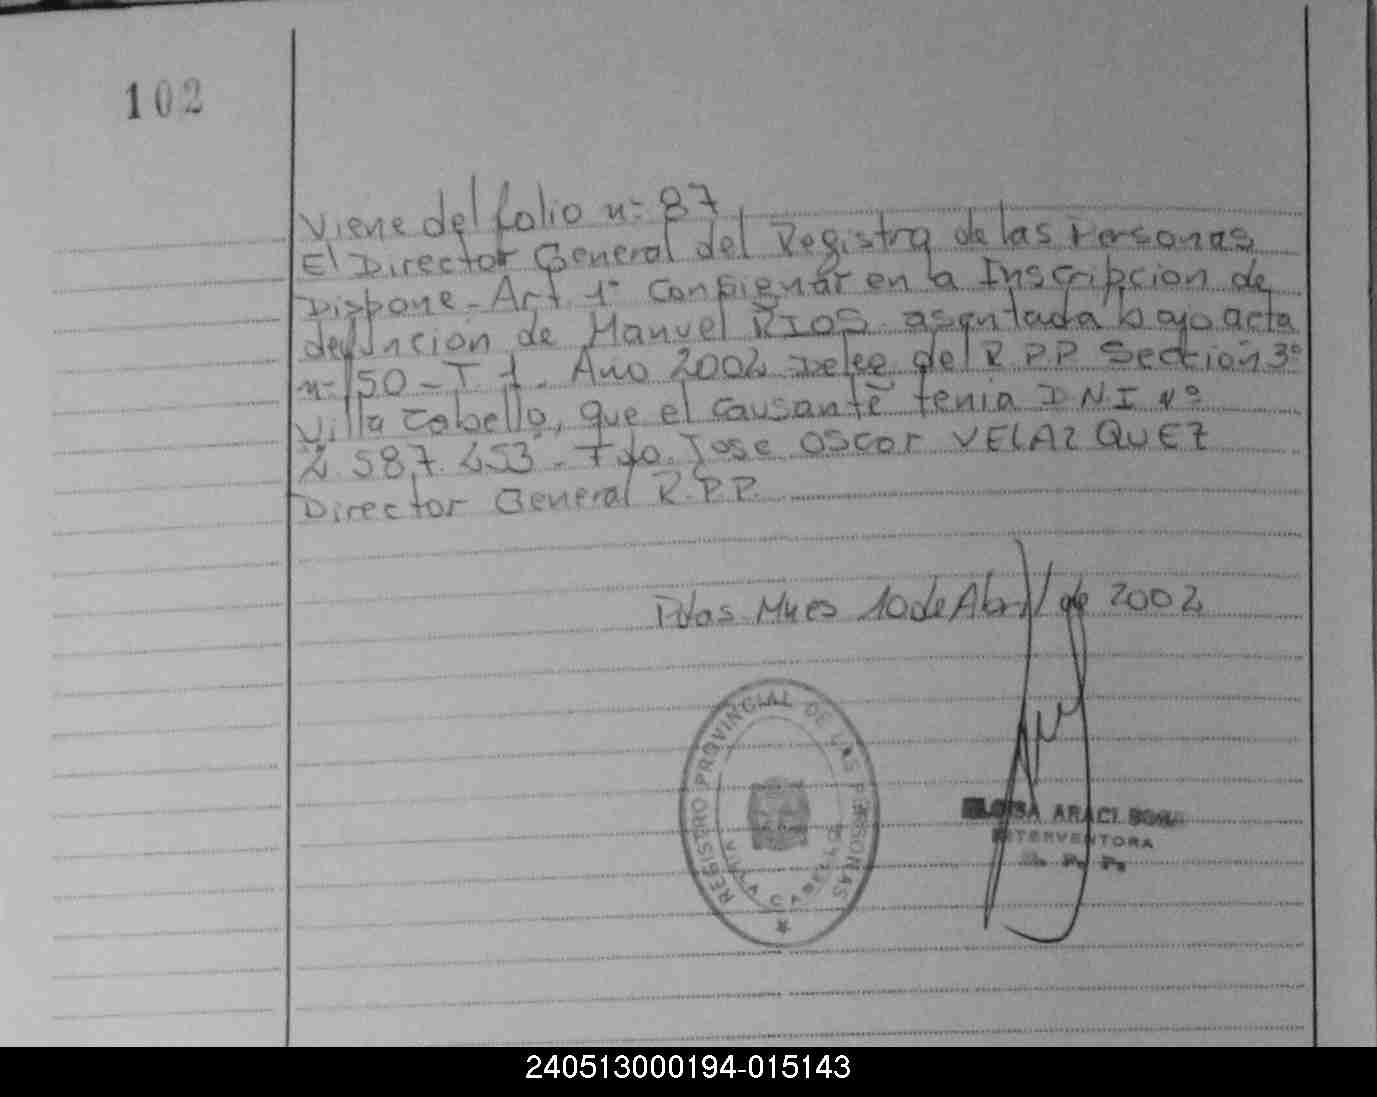 102
Viene del folio n= 87
El Director General del Registro de las Personas
Dispone - Art 1º Consignar en la Inscripcion de
defuncion de Manuel RIOS asentada bajo acta
n= 150 - T. 1. Año 2002 del R.P.P. Sección 3º
Villa Cabello, que el causante tenia D N I Nº
2.587.453 - Fdo. Jose Oscar VELAZQUEZ
Director General R.P.P.
Pdas. Mnes 10 de Abril de 2002
REGISTRO PROVINCIAL DE LAS PERSONAS
VILLA CABELLO
ARACI
INTERVENTORA
R. P. P.
240513000194-015143